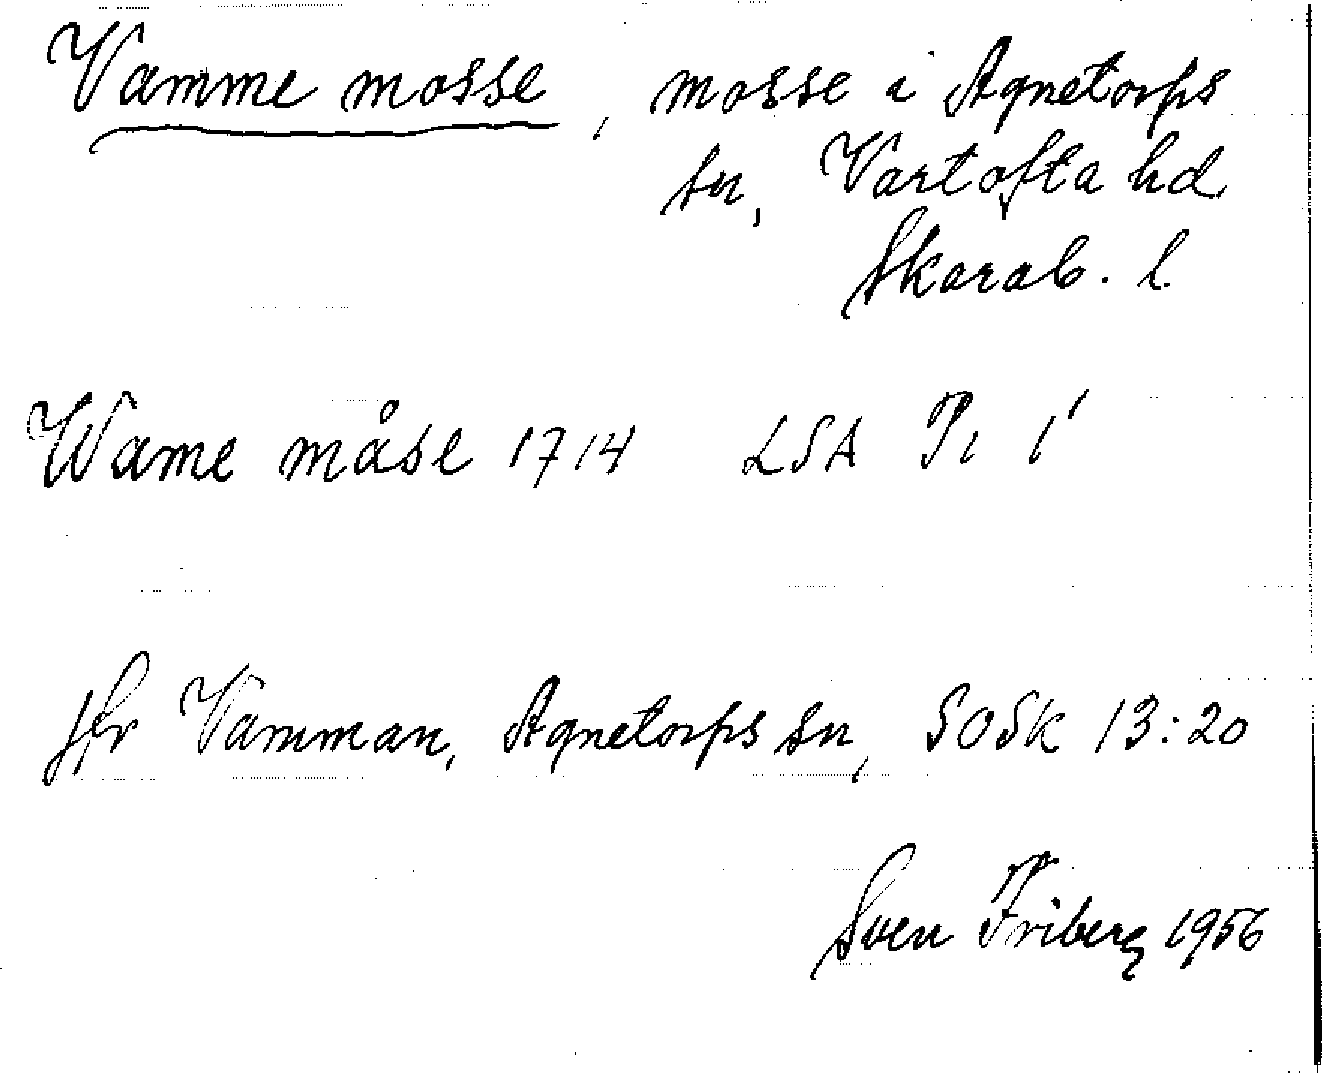 Vamme mosse, mosse i Agnetorps
sn, Vartofta hd
Skarab. l.
Wame måse 1714 LSA P1 1'
jfr Vamman, Agnetorps sn, SOSk 13:20
Sven Friberg 1956